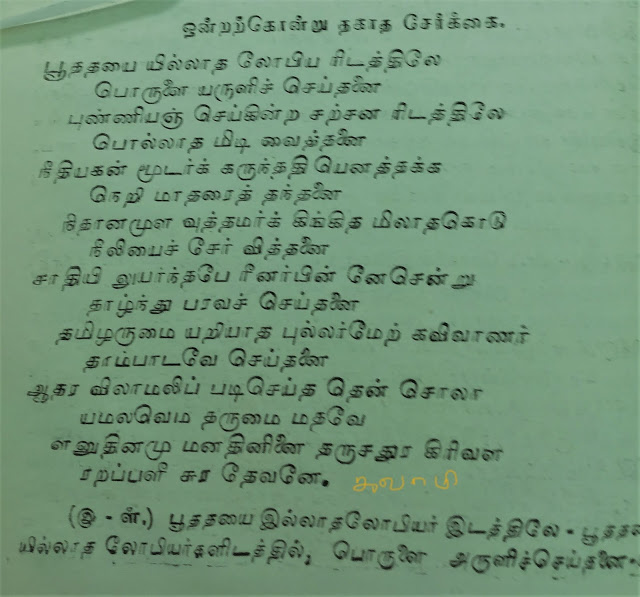 ஒன்றற்கொன்று தகாத சேர்க்கை.
பூததயை யில்லாத லோபிய ரிடத்திலே
பொருளை யருளிச் செய்தனை
புண்ணியஞ் செய்கின்ற சற்சன ரிடத்திலே
பொல்லாத மிடி வைத்தனை
நீதியகன் மூடர்க் கருந்ததி யெனத்தக்க
நெறி மாதரைத் தந்தனை
நிதானமுள வுத்தமர்க் கிங்கித மிலாதகொடு
நீலியைச் சேர் வித்தனை
சாதியி லுயர்ந்தபே ரீனர்பின் னேசென்று
தாழ்ந்து பரவச் செய்தனை
தமிழருமை யறியாத புல்லர்மேற் கவிவாணர்
தாம்பாடவே செய்தனை
ஆதர விலாமலிப் படிசெய்த தென் சொலா
யமலவெம தருமை மதவே
ளனுதினமு மனதினினை தருசதுர கிரிவள
ரறப்பளீ சுர தேவனே. சுவாமி
(இ - ள்.) பூததயை இல்லாதலோபியர் இடத்திலே - பூததயை
யில்லாத லோபியர்களிடத்தில், பொருளை அருளிச்செய்தனை-